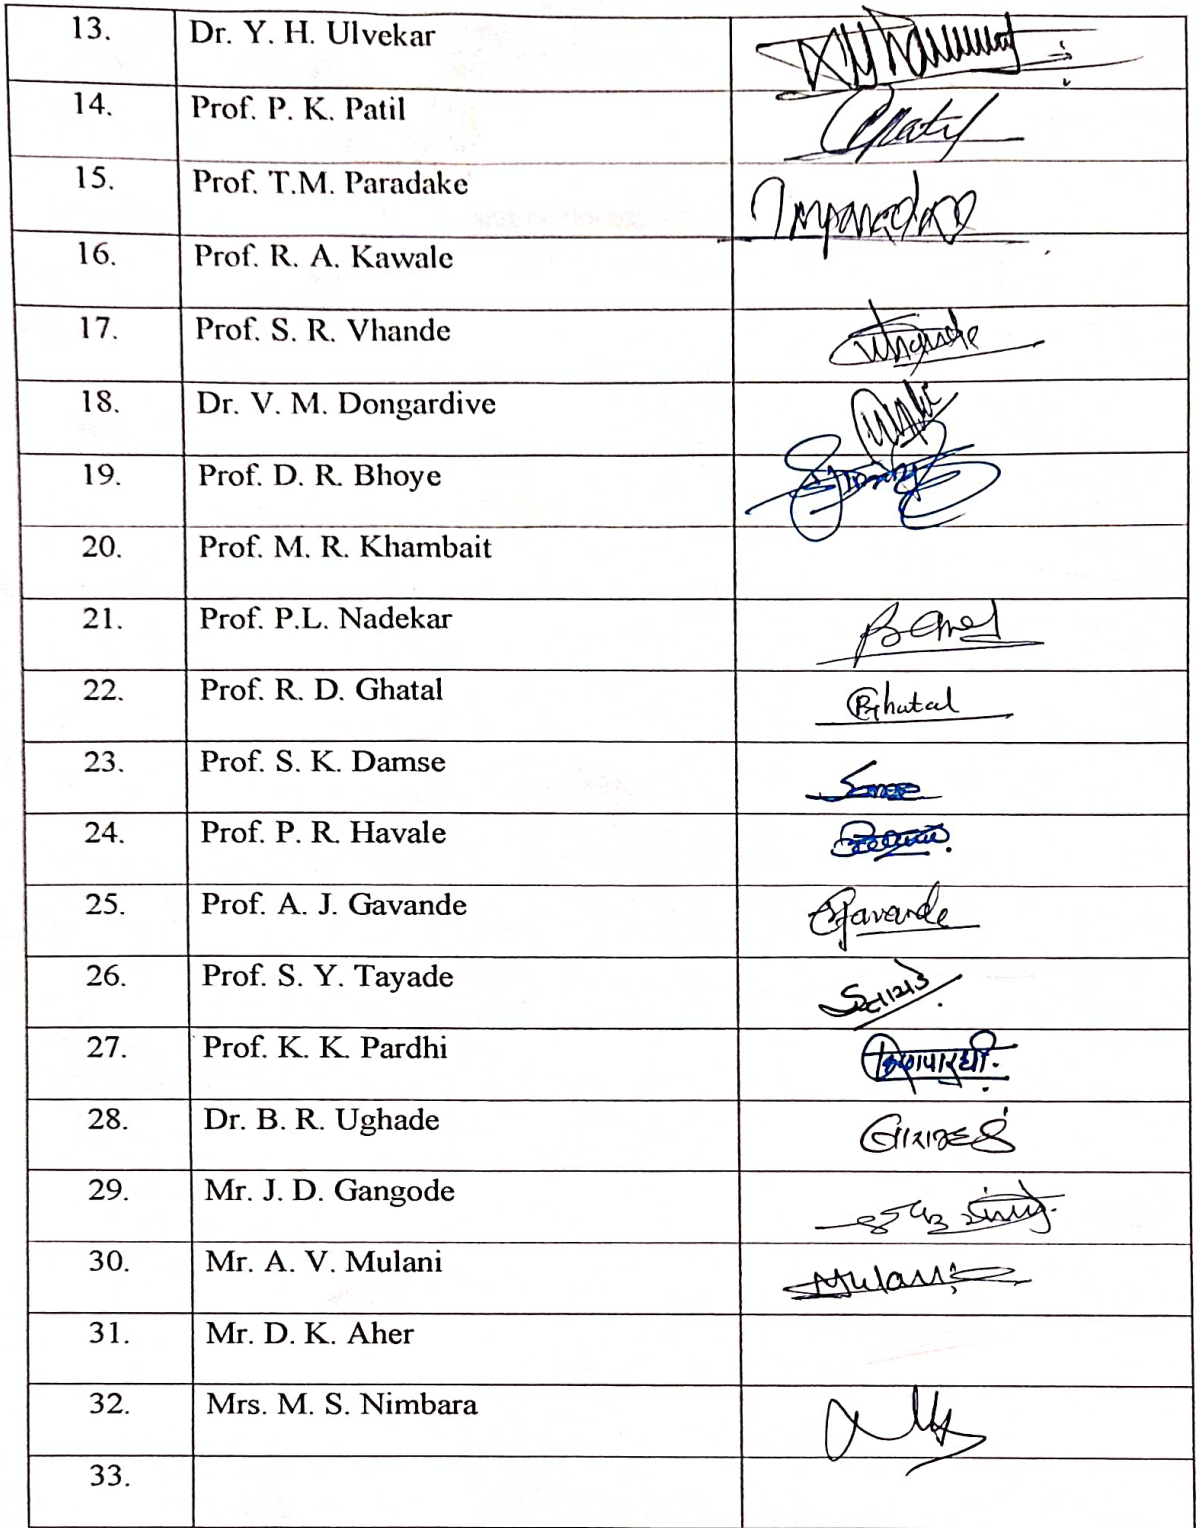 13. Dr. Y. H. Ulvekar
14. Prof. P. K. Patil
15. Prof. T.M. Paradake
16. Prof. R. A. Kawale
17. Prof. S. R. Vhande
18. Dr. V. M. Dongardive
19. Prof. D. R. Bhoye
20. Prof. M. R. Khambait
21. Prof. P.L. Nadekar
22. Prof. R. D. Ghatal Ghatal
23. Prof. S. K. Damse
24. Prof. P. R. Havale
25. Prof. A. J. Gavande Gavande
26. Prof. S. Y. Tayade
27. Prof. K. K. Pardhi
28. Dr. B. R. Ughade
29. Mr. J. D. Gangode
30. Mr. A. V. Mulani Mulani
31. Mr. D. K. Aher
32. Mrs. M. S. Nimbara
33.